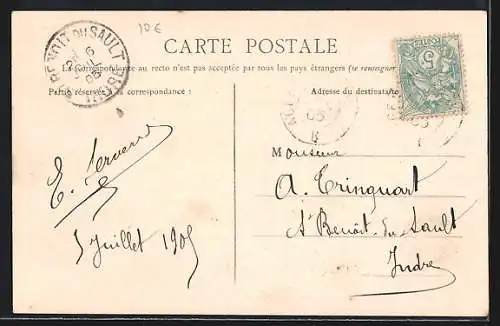 10 €
CARTE POSTALE
La Correspondance au recto n'est pas acceptée par tous les pays étrangers (se renseigner
Partie réservée à la correspondance :
Adresse du destinataire
St BENOIT DU SAULT
6
05
INDRE
05
5
Monsieur
A. Tringuart
St Benoît du Sault
Indre
5 Juillet 1905